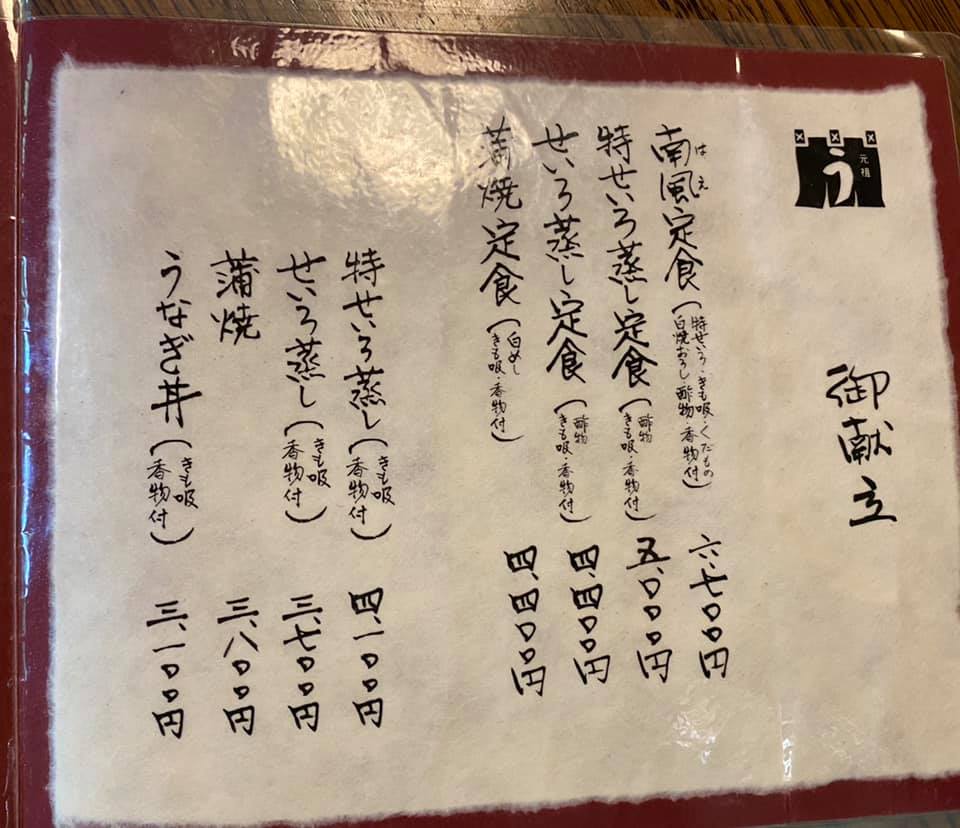 元祖
う
御献立
南風定食(特せいろ・きも吸・くだもの
はえ
白焼おろし・酢物・香物付)
六、七〇〇円
特せいろ蒸し定食(酢物
きも吸・香物付)
五、〇〇〇円
せいろ蒸し定食(酢物
きも吸・香物付)
四、四〇〇円
蒲焼定食(白めし
きも吸・香物付)
四、四〇〇円
特せいろ蒸し(きも吸
香物付)
四、一〇〇円
せいろ蒸し(きも吸
香物付)
三、七〇〇円
蒲焼
三、八〇〇円
うなぎ丼(きも吸
香物付)
三、一〇〇円